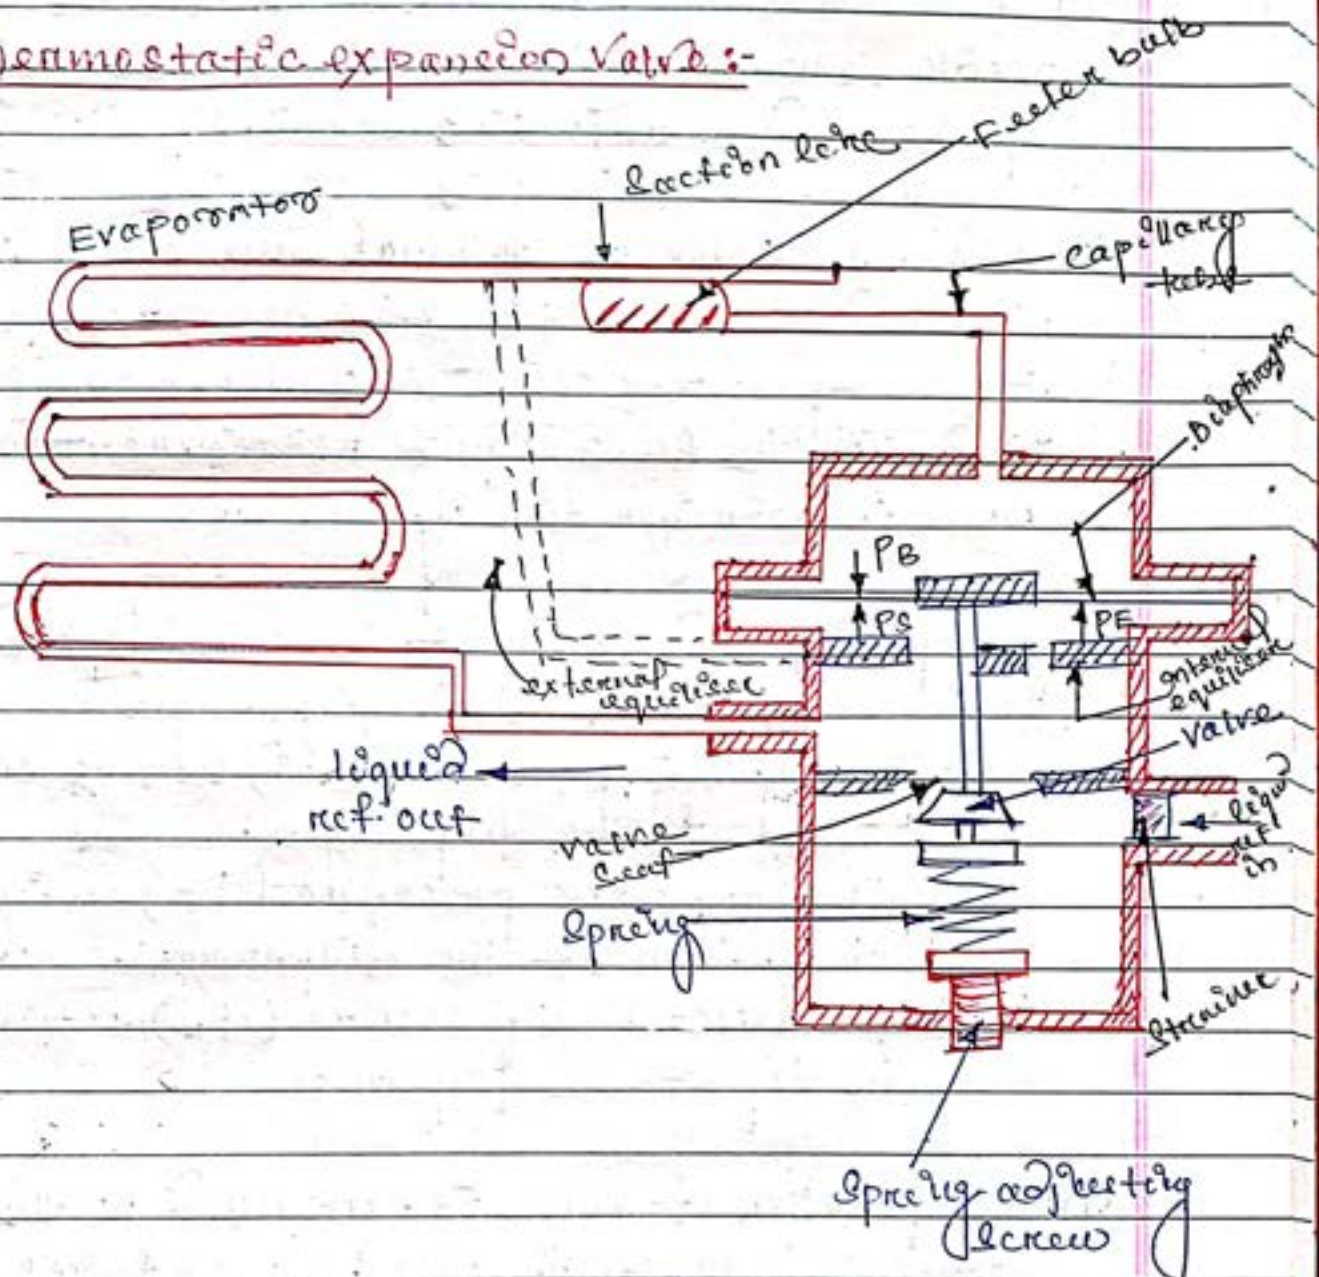 Thermostatic expansion Valve :-
Feeler bulb
Suction line
Evaporator
Capillary
tube
Diaphragm
PB
PS
PE
external
equiliser
internal
equiliser
valve
liquid
ref. out
liquid
ref
in
valve
seat
Spring
Strainer
Spring adjusting
screw